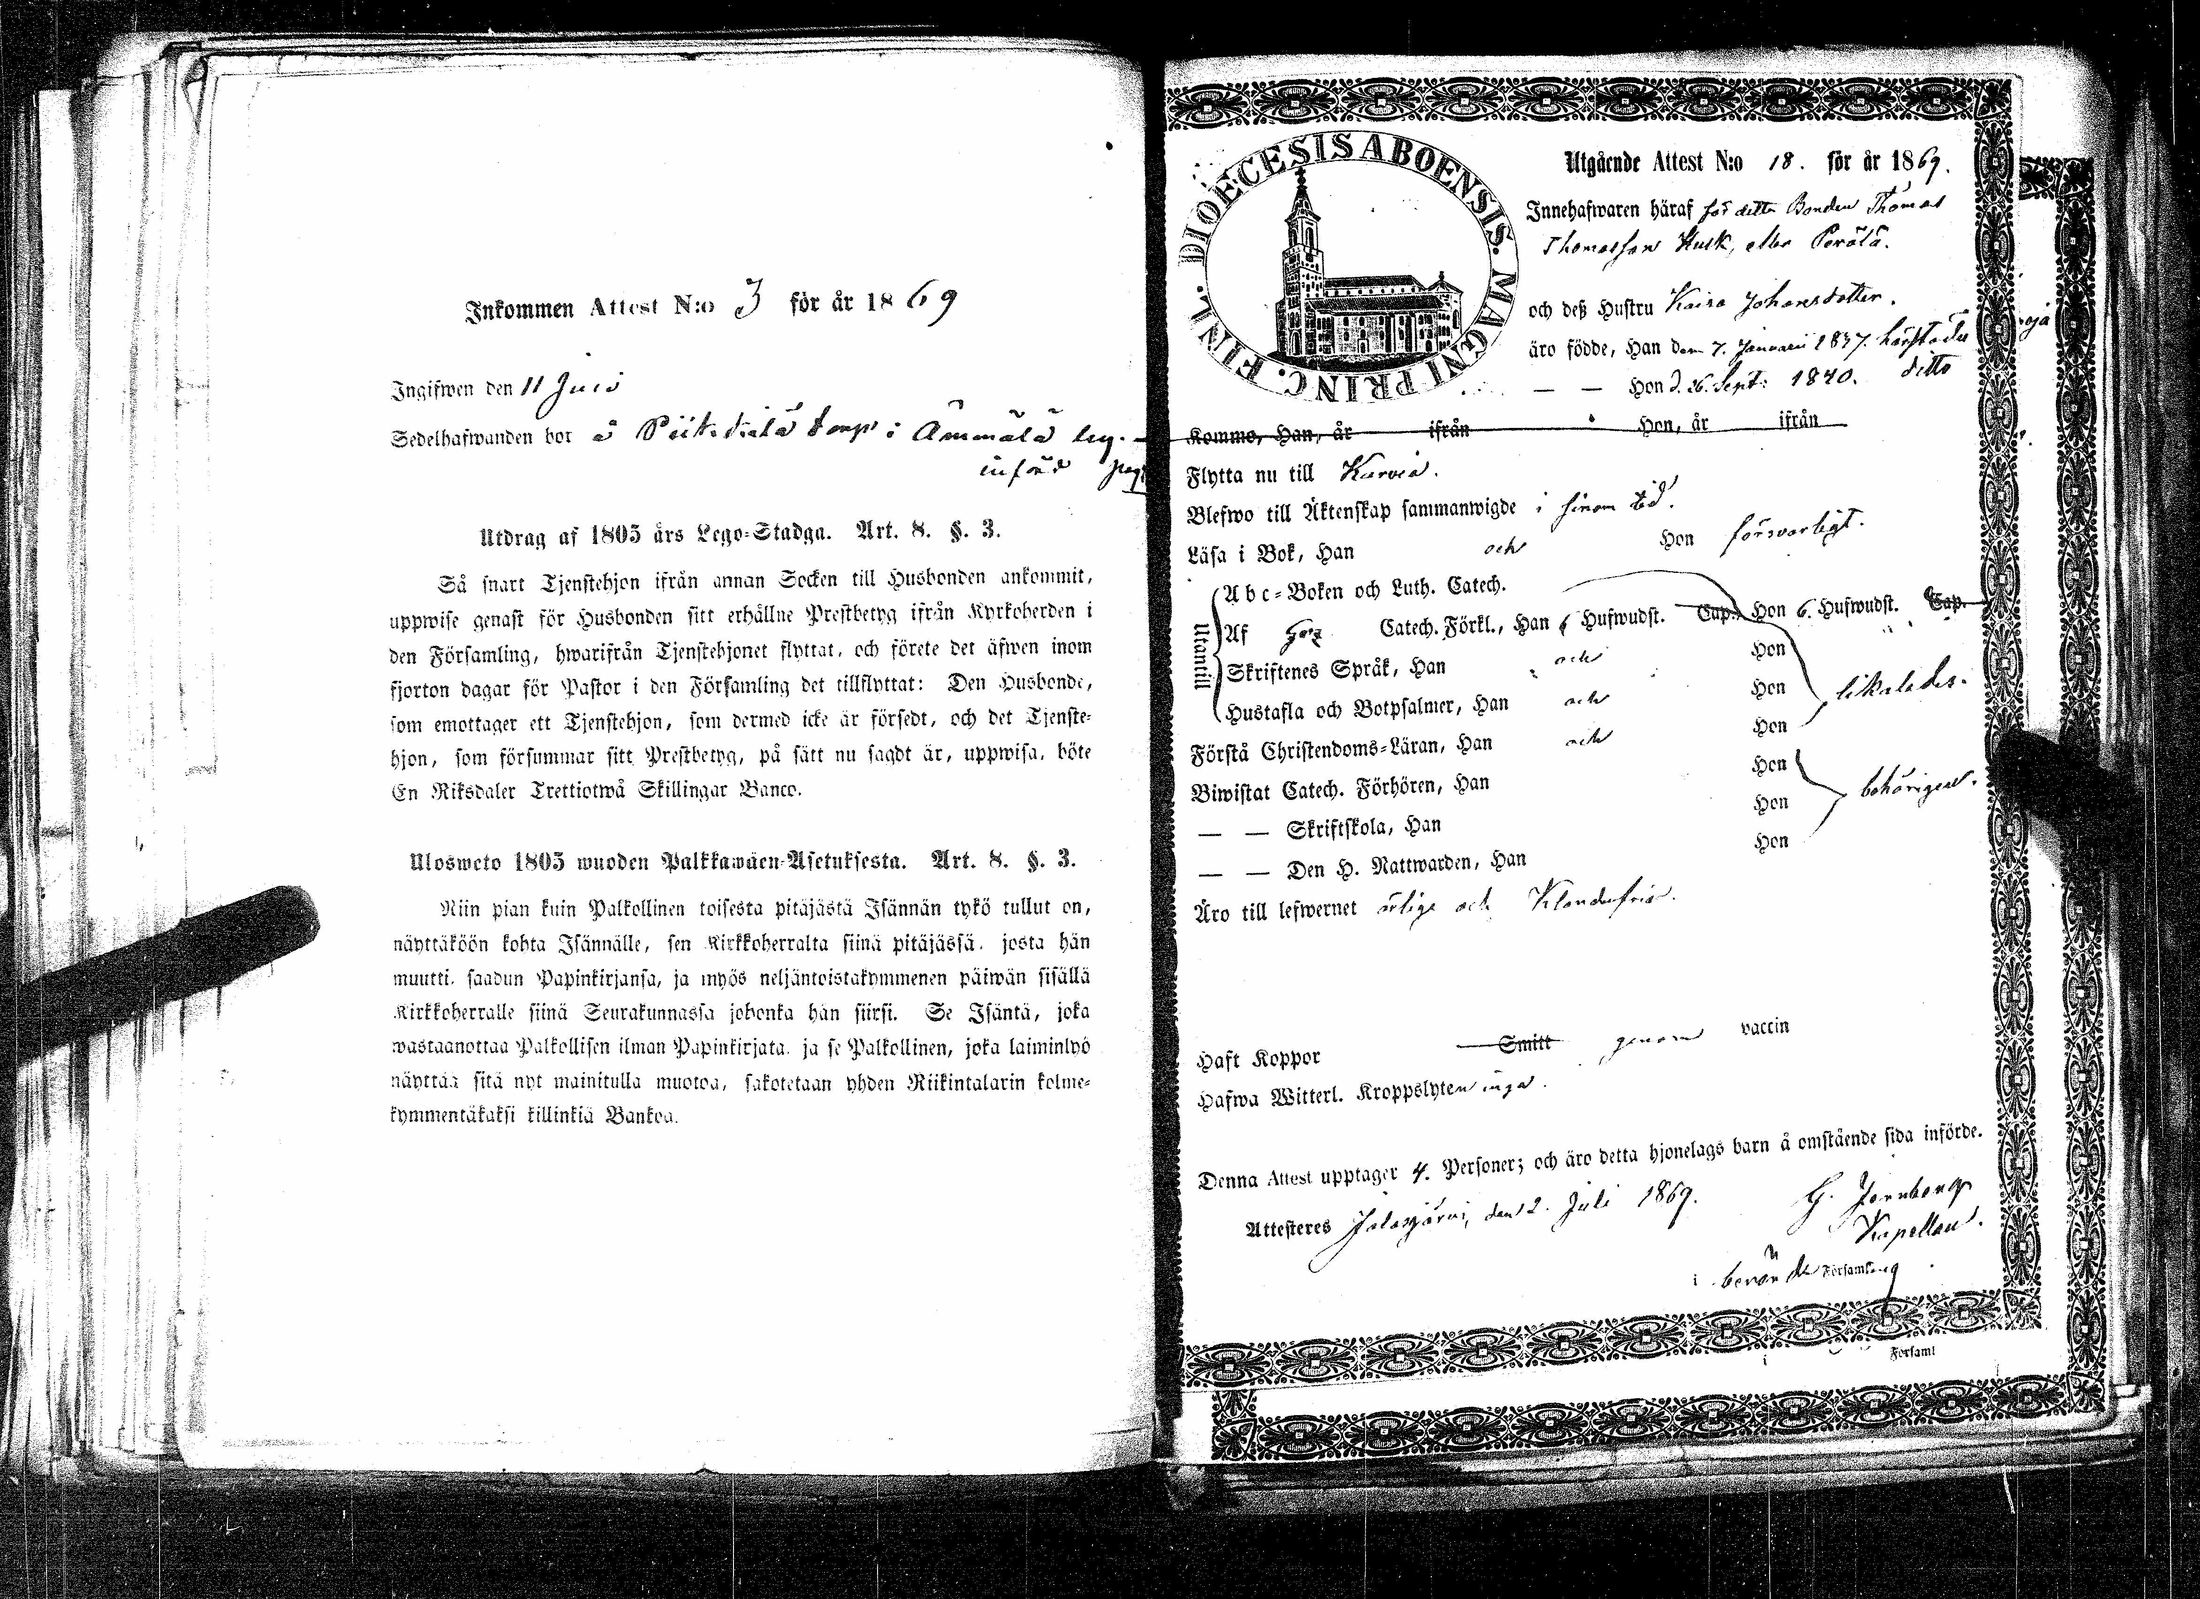 Inkommen Attest N:o 3 för år 1869
Ingifwen den 11 Juli
Sedelhafwanden bor å torp i Ämmälä
införd pag
Utdrag af 1805 års Lego-Stadga. Art. 8. §. 3.
Så snart Tjenstehjon ifrån annan Socken till Husbonden ankommit,
uppwise genast för Husbonden sitt erhållne Prestbetyg ifrån Kyrkoherden i
den Församling, hwarifrån Tjenstehjonet flyttat, och förete det äfwen inom
fjorton dagar för Pastor i den Församling det tillflyttat: Den Husbonde,
som emottager ett Tjenstehjon, som dermed icke är försedt, och det Tjenste-
hjon, som försummar sitt Prestbetyg, på sätt nu sagdt är, uppwisa, böte
En Riksdaler Trettiotwå Skillingar Banco.
Ulosweto 1805 wuoden Palkkawäen-Asetuksesta. Art. 8. §. 3.
Niin pian kuin Palkollinen toisesta pitäjästä Isännän tykö tullut on,
näyttäköön kohta Isännälle, sen Kirkkoherralta siinä pitäjässä, josta hän
muutti, saadun Papinkirjansa, ja myös neljäntoistakymmenen päiwän sisällä
Kirkkoherralle siinä Seurakunnassa johonka hän siirsi. Se Isäntä, joka
wastaanottaa Palkollisen ilman Papinkirjata, ja se Palkollinen, joka laiminlyö
näyttää sitä nyt mainitulla muotoa, sakotetaan yhden Riikintalarin kolme-
kymmentäkaksi killinkiä Bankoa.
DIOECESIS ABOENSIS. MAGNI PRINC. FINL.
Utgående Attest N:o 18. för år 1869.
Innehafwaren häraf för detta Bonden Thomas
Thomasson Kusk, eller Perälä.
och deß Hustru Kaisa Johansdotter.
äro födde, Han den 7. Januarii 1837. härstädes
— — Hon d. 26. Sept: 1840. ditto
Komme, Han, år ifrån Hon, år ifrån
Flytta nu till Karvia.
Blefwo till Äktenskap sammanwigde i sinom tid.
Läsa i Bok, Han och Hon försvarligt.
Utantill
Abc-Boken och Luth. Catech.
Af Catech. Förkl., Han 6 Hufwudst. Cap., Hon 6. Hufwudst. Cap.
Skriftenes Språk, Han och Hon
Hustafla och Botpsalmer, Han och Hon likaledes.
Förstå Christendoms-Läran, Han och Hon
Biwistat Catech. Förhören, Han Hon
— — Skriftskola, Han Hon behörigen.
— — Den H. Nattwarden, Han Hon
Äro till lefwernet ärlige och Klanderfria.
Haft Koppor Smitt genom vaccin
Hafwa Witterl. Kroppslyten inga.
Denna Attest upptager 4. Personer; och äro detta hjonelags barn å omstående sida införde.
Attesteres Jalasjärvi, den 2. Juli 1869.
Kapellan.
i berörde Församling
i Församl